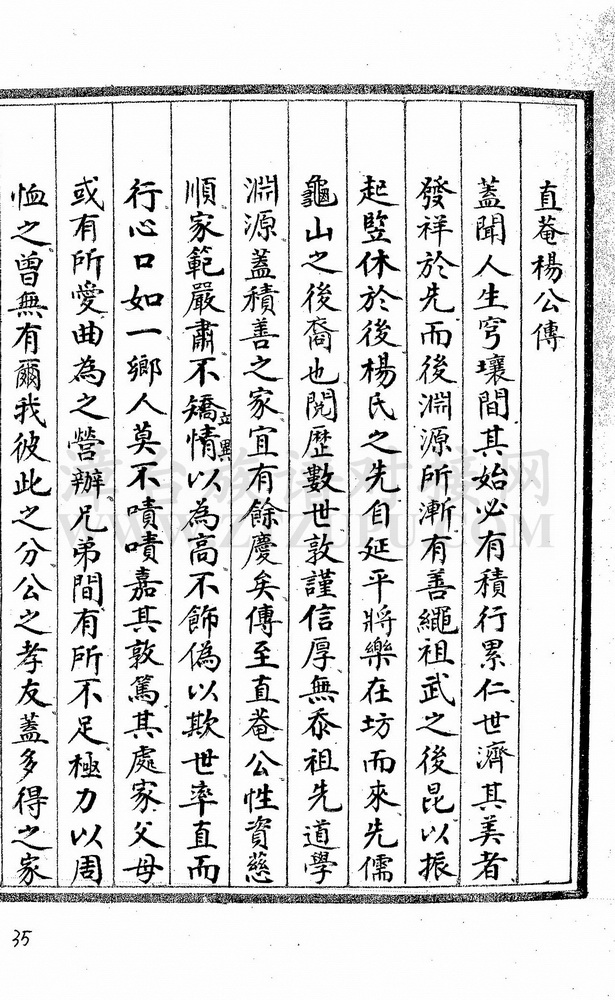 直菴楊公傳
蓋聞人生穹壤間其始必有積行累仁世濟其美者
發祥於先而後淵源所漸有善繩祖武之後昆以振
起竪休於後楊氏之先自延平將樂在坊而來先儒
龜山之後裔也閱歷數世敦謹信厚無忝祖先道學
淵源蓋積善之家宜有餘慶矣傳至直菴公性資慈
順家範嚴肅不矯情以為高不飾偽以欺世率直而
立異
行心口如一鄉人莫不嘖嘖嘉其敦篤其處家父母
或有所愛曲為之營辦兄弟間有所不足極力以周
恤之曾無有爾我彼此之分公之孝友蓋多得之家
35
WWW.ZTZUPU.COM